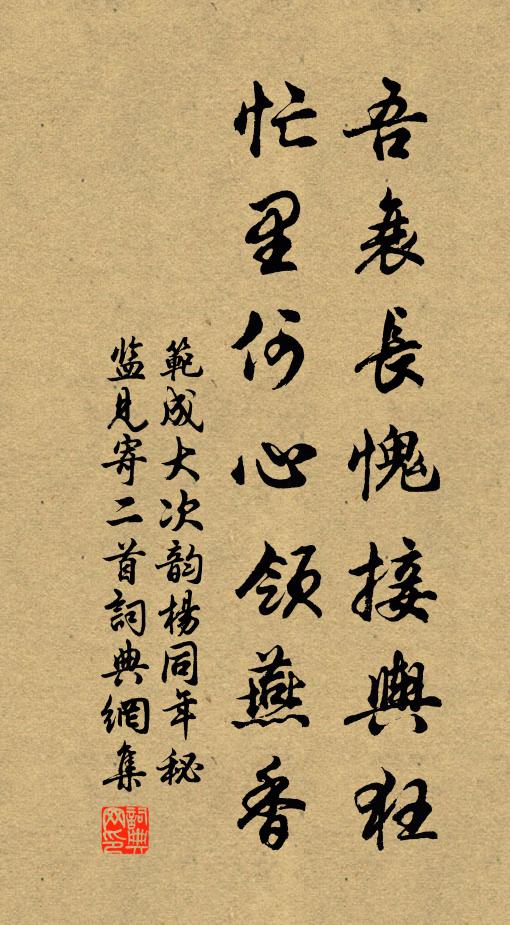 吾衰長愧接輿狂
忙里何心領燕香
範成大次韵楊同年秘
监見寄二首詞典網集
詞典网印